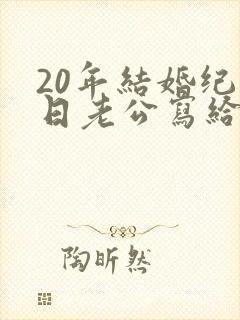 20年結婚纪
日老公寫給
陶昕然